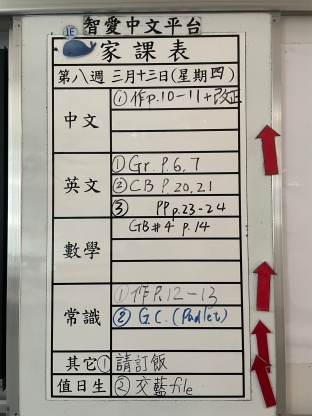 智愛中文平台
1E
家課表
第八週 三月十三日(星期四)
中文 ①作p.10-11+改正
英文 ①Gr. P.6,7
②CB P.20,21
③ PP p.23-24
數學 GB#4 p.14
常識 ①作P.12-13
② G.C. (Padlet)
其它 ① 請訂飯
值日生 ② 交藍file